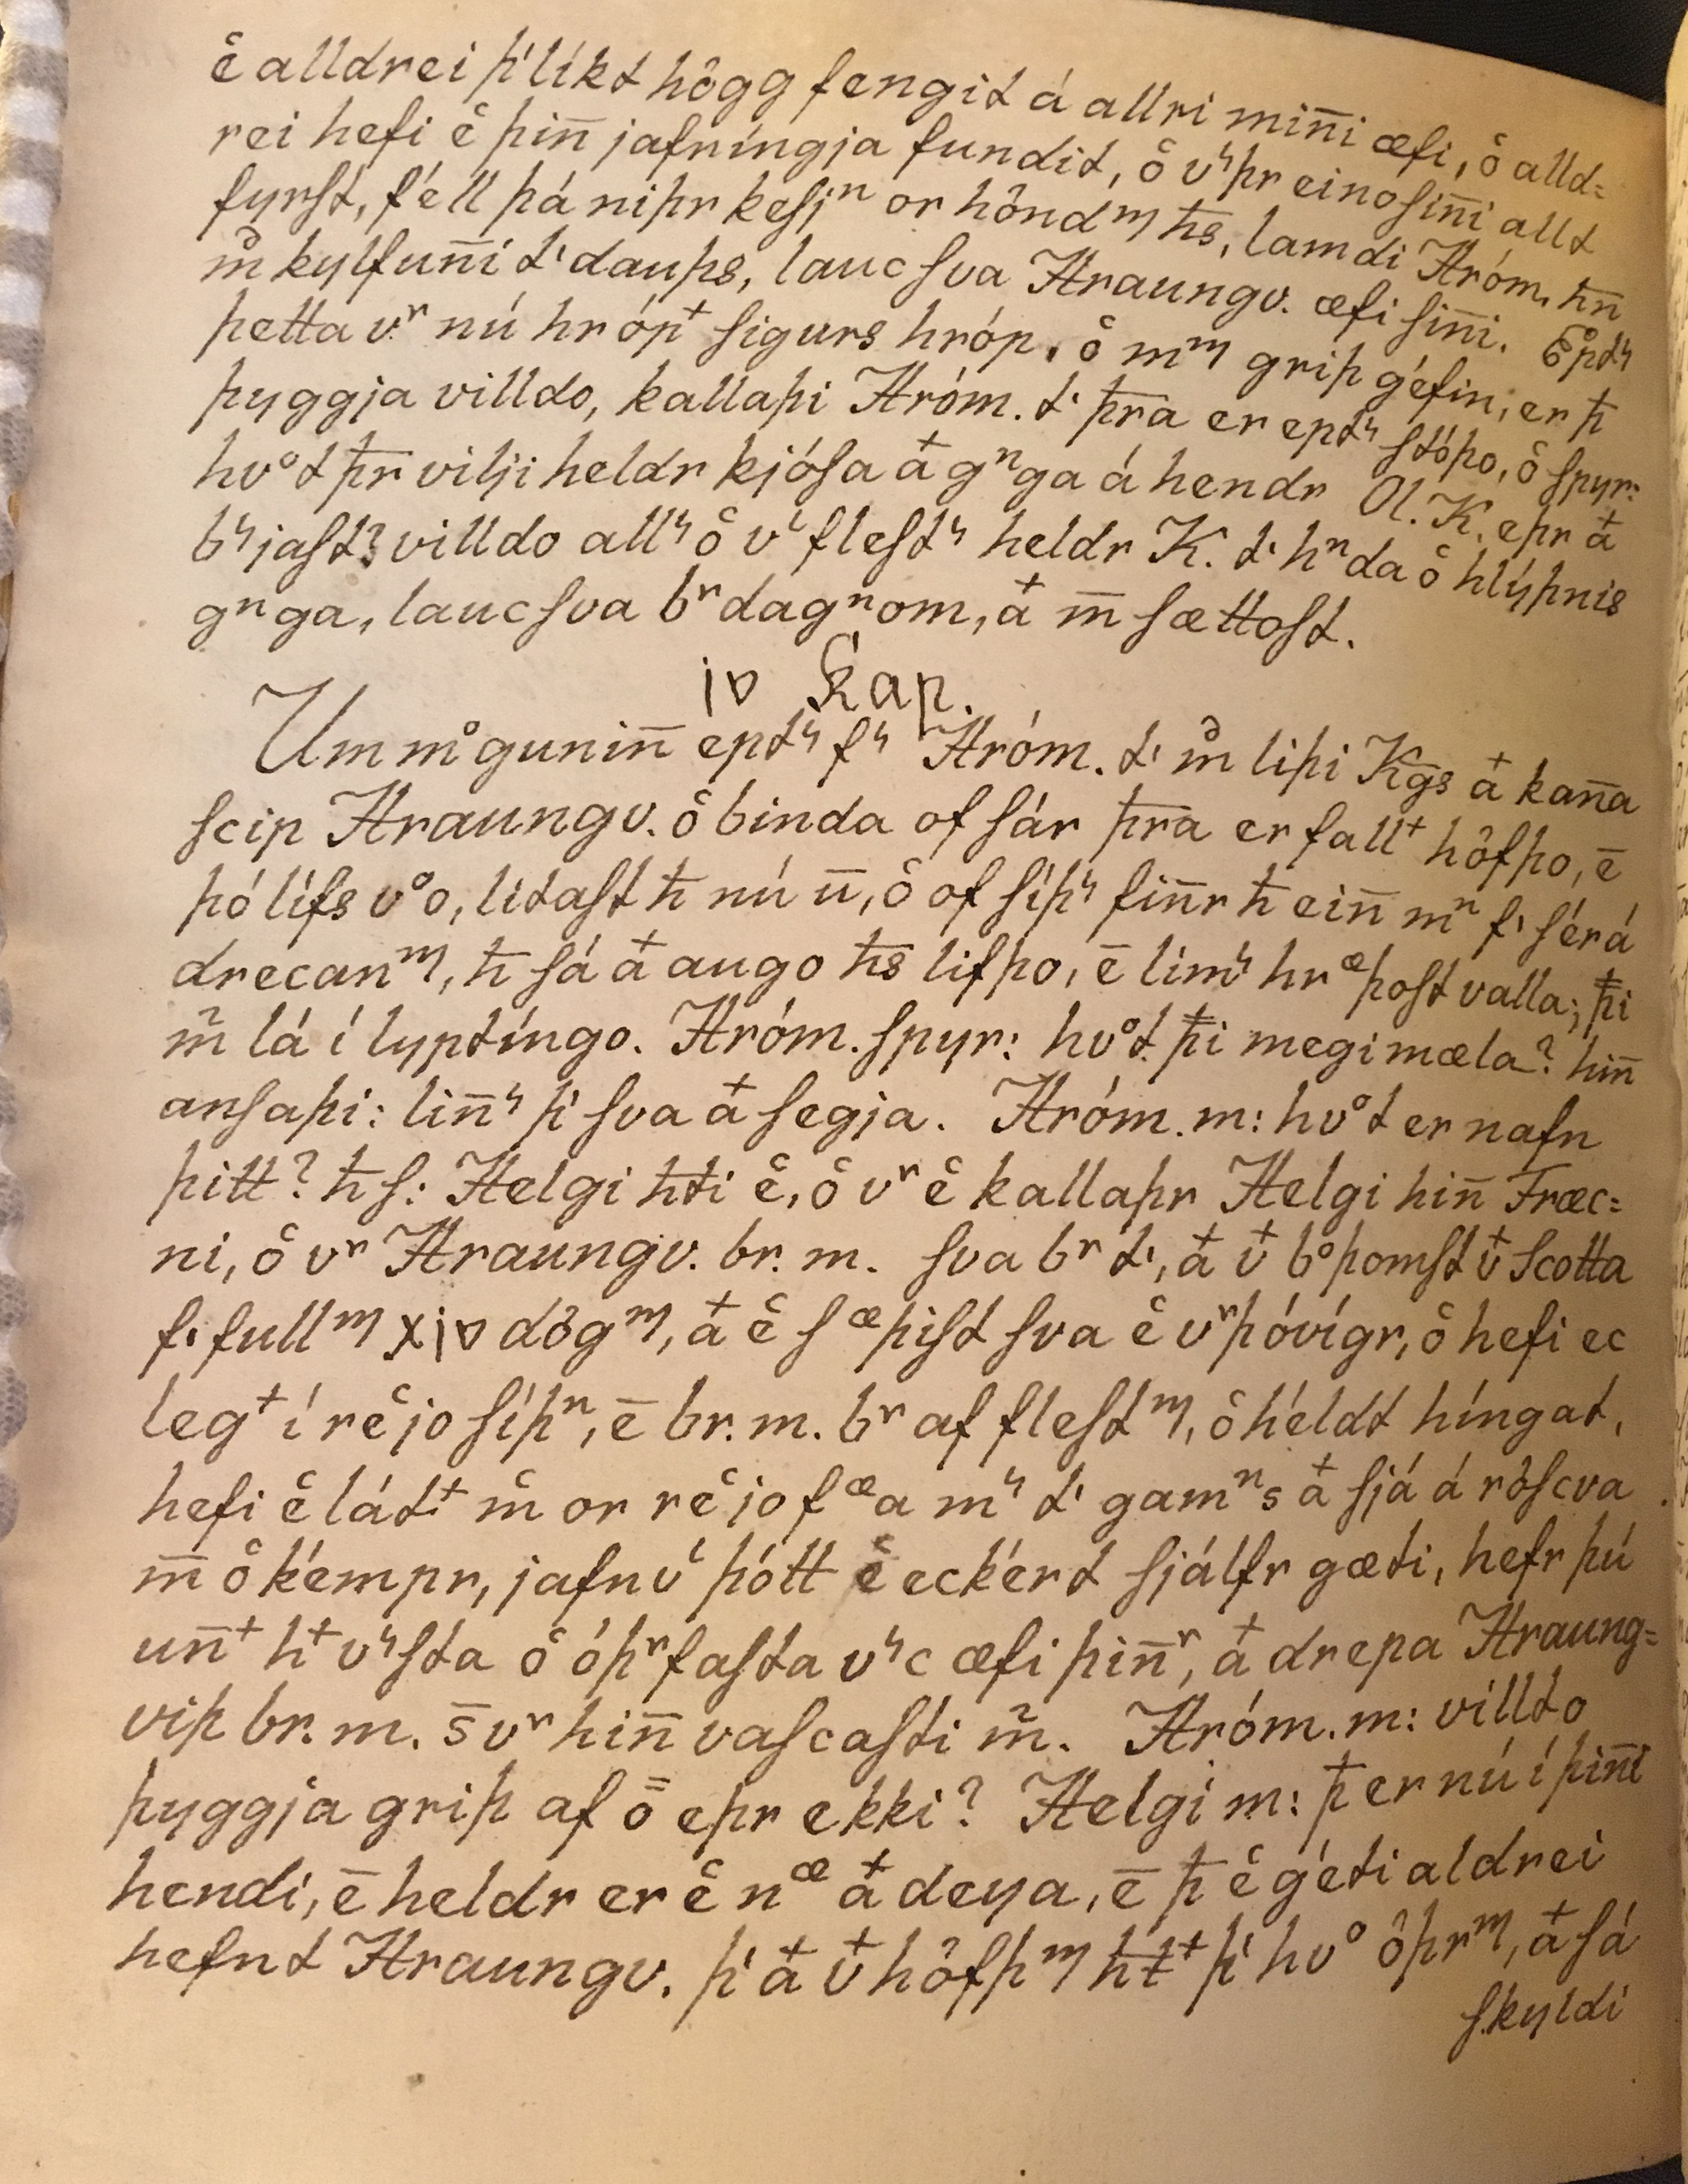 e͛ alldrei þ'líkt hôgg fengit á allri min̄i æfi, o͛ alld=
rei hefi e͛ þin̄ jafníngja fundit, o͛ v͛þr eino sin̄i allt
fyrst, féll þá niþr kesjⁿ or hôndᵐ ħs, lamdi Hróm. ħn̄
m͛ kylfun̄i t' dauþs, lauc sva Hraungv. æfi sin̄i. Ept͛
þetta vʳ nú hróp⁺ sigurs hróp, o͛ mᵐ griþ géfin, er þ̄
þyggja villdo, kallaþi Hróm. t' þ̄ra er ept͛ stóþo, o͛ spyr:
hvᵒt þ̄r vilji heldr kjósa a⁺ gⁿga á hendr Ol. K. eþr a⁺
b͛jast? villdo all͛ o͛ v' flest͛ heldr K. t' hⁿda o͛ hlýþnis
gⁿga, lauc sva bʳdagⁿom, a⁺ m̄ sættost.
iv Kap.
Um mᵒgunin̄ ept͛ f͛ Hróm. t' m͛ liþi Kḡs a⁺ kan̄a
scip Hraungv. o͛ binda of sár þ̄ra er fall⁺ hôfþo, ē
þó lífs vᵒo, litast ħ nú ū, o͛ of síþ͛ fin̄r ħ ein̄ mⁿ f' sér á
drecanᵐ, ħ sá a⁺ augo ħs lifþo, ē lim͛ hrᵆþost valla; þ̄i
m̃ lá í lyptíngo. Hróm. spyr: hvᵒt þ̄i megi mæla? hin̄
ansaþi: lin̄͛ þ' sva a⁺ segja. Hróm. m: hvᵒt er nafn
þitt? ħ s: Helgi ħti e͛, o͛ vʳ e͛ kallaþr Helgi hin̄ Fræc=
ni, o͛ vʳ Hraungv. br. m. sva bʳ t', a⁺ v⁺ bᵒþomst v⁺ Scotta
f' fullᵐ xiv dôgᵐ, a⁺ e͛ sᵆþist sva e͛ vʳþ óvígr, o͛ hefi ec
leg⁺ í re͛jo síþⁿ, ē br. m. bʳ af flestᵐ, o͛ héldt híngat,
hefi e͛ lát⁺ m͛ or re͛jo fᵆa m͛ t' gamⁿs a⁺ sjá á rôscva
m̄ o͛ kémpr, jafnv' þótt e͛ eckért sjálfr gæti, hefr þú
un̄⁺ h⁺ v͛sta o͛ óþʳfasta v͛c æfi þin̄ʳ, a⁺ drepa Hraung=
viþ br. m. s̄ vʳ hin̄ vascasti m̃. Hróm. m: villto
þyggja griþ af ō eþr ekki? Helgi m: þ̄ er nú í þin̄i
hendi, ē heldr er e͛ nᵆ a⁺ deya, ē þ̄ e͛ géti aldrei
hefnt Hraungv. þ' a⁺ v⁺ hôfþᵐ ħt⁺ þ' hvᵒ ôþrᵐ, a⁺ sá
skyldi